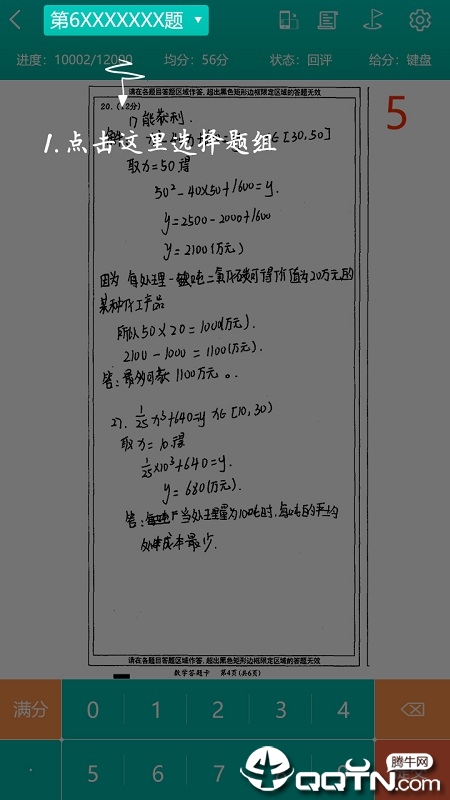 第6XXXXXXX题
进度：10002/12000 均分：56分 状态：回评 给分：键盘
请在各题目答题区域作答,超出黑色矩形边框限定区域的答题无效
20.(12分)
5
能获利.
∈[30,50]
1.点击这里选择题组
取x=50得
50²-40×50+1600=y.
y=2500-2000+1600
y=2100(万元)
因为 每处理一吨二氧化碳可得价值为20万元的
某种化工产品
所以50×20=1000(万元).
2100-1000=1100(万元).
答:最多可获1100万元。
1/25 x³+640=y x∈[10,30)
取x=10得
1/25×10³+640=y.
y=680(万元).
答: 当处理量为100吨时,每吨的平均
处理成本最少.
请在各题目答题区域作答,超出黑色矩形边框限定区域的答题无效
数学答题卡 第4页(共6页)
满分 0 1 2 3 4
· 5 6 7
腾牛网
QQTN.com